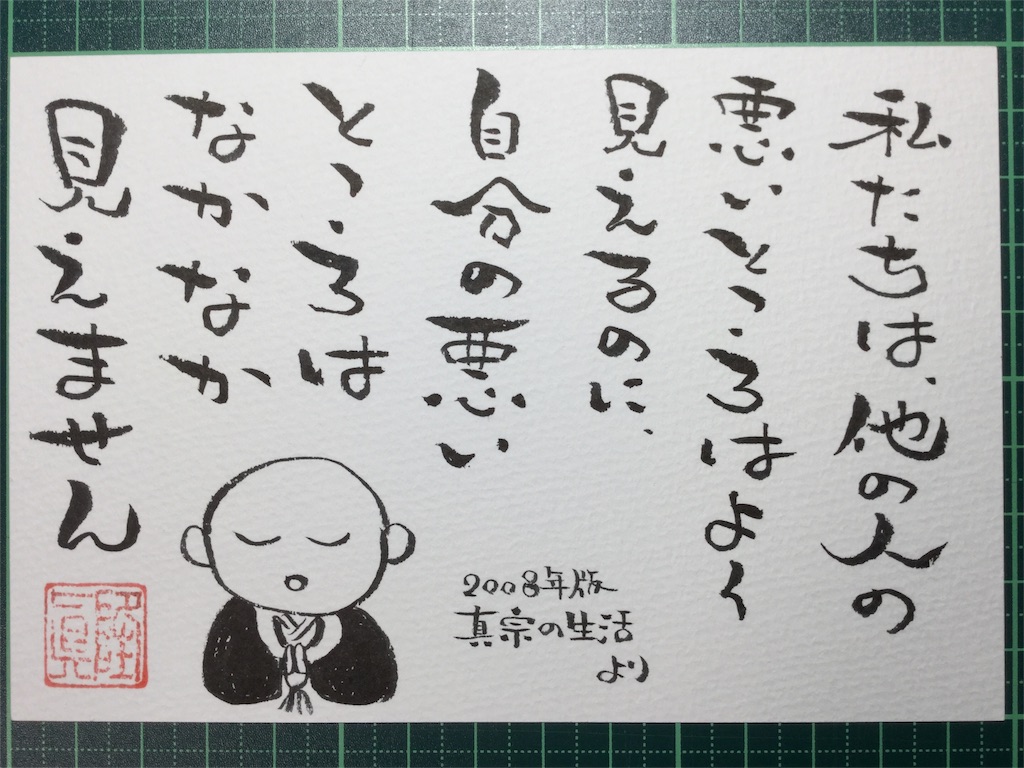 私たちは、他の人の
悪いところはよく
見えるのに、
自分の悪い
ところは
なかなか
見えません
2008年版
真宗の生活
より